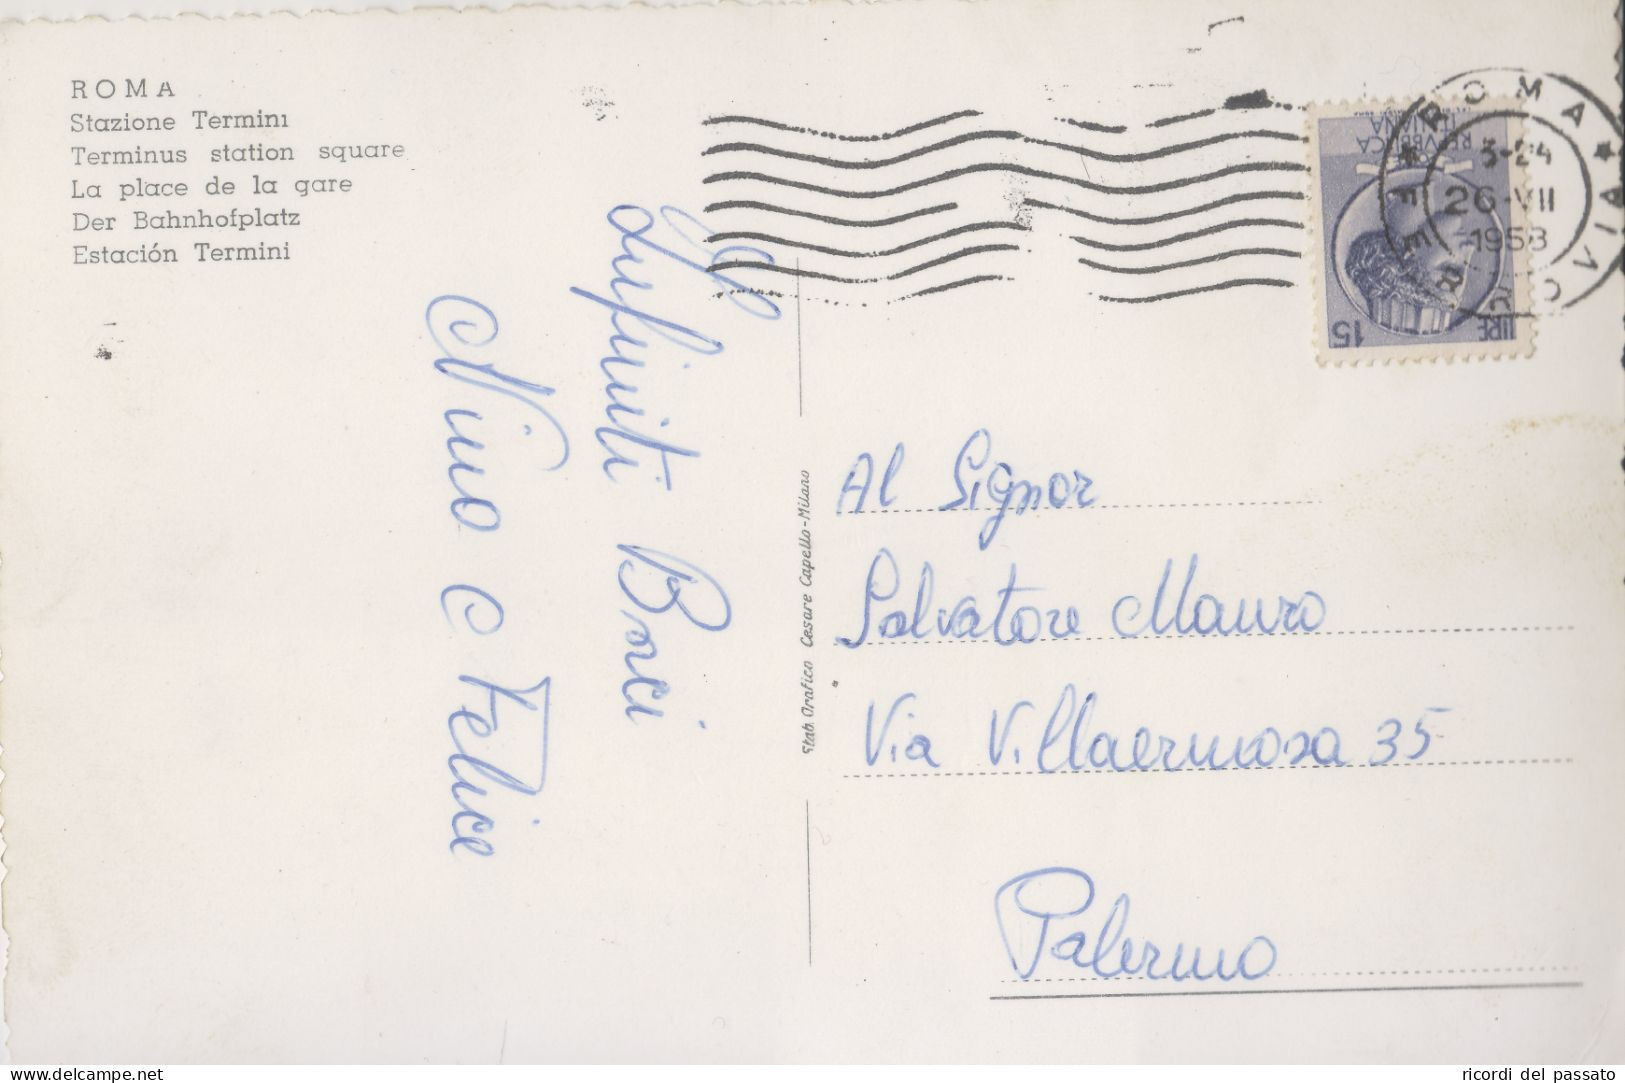 ROMA
Stazione Termini
Terminus station square
La place de la gare
Der Bahnhofplatz
Estación Termini
Infiniti Baci
Nino e Felice
Stab. Grafico Cesare Capello-Milano
REPVBBLICA
ITALIANA
LIRE 15
ROMA FERROVIA
23-24
26-VII
1958
Al Signor
Salvatore Mauro
Via Villaermosa 35
Palermo
delcampe.net
ricordi del passato